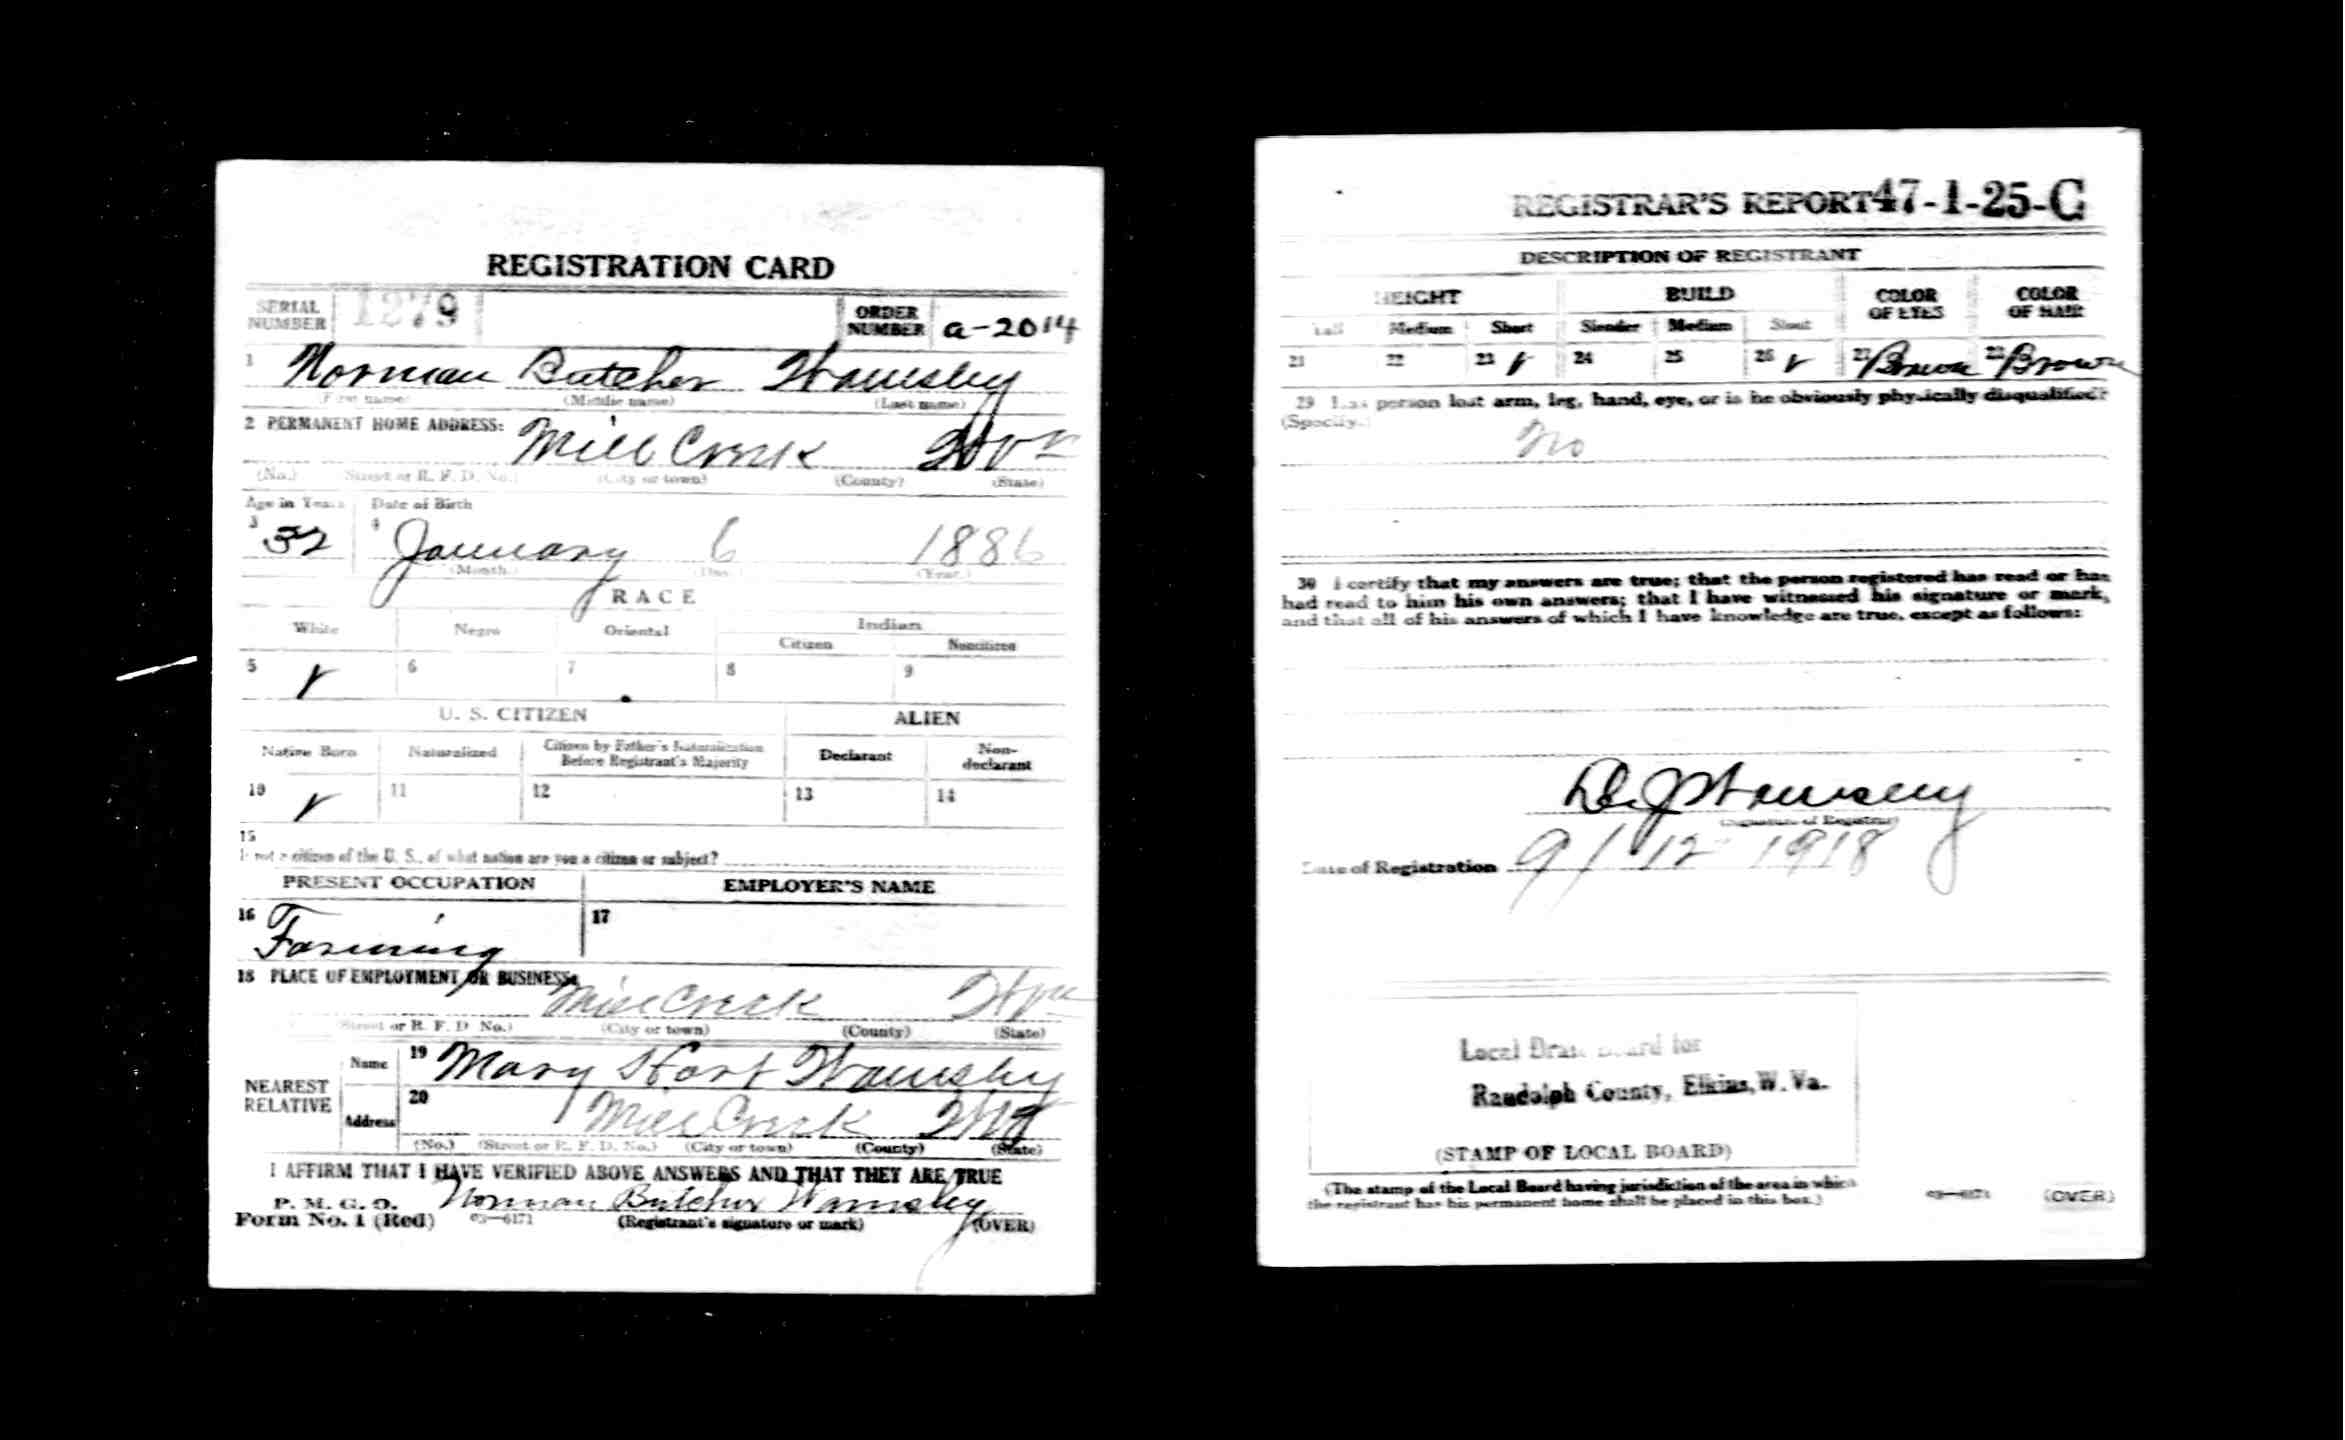 REGISTRATION CARD
SERIAL NUMBER 1279 ORDER NUMBER a-2014
1 Norman Butcher Wamsley
(First name) (Middle name) (Last name)
2 PERMANENT HOME ADDRESS: Mill Creek W Va
(No.) (Street or R. F. D. No.) (City or town) (County) (State)
Age in Years Date of Birth
3 32 4 January 6 1886
(Month.) (Day.) (Year.)
RACE
White Negro Oriental Indian
Citizen Noncitizen
5 6 7 8 9
U. S. CITIZEN ALIEN
Native Born Naturalized Citizen by Father's Naturalization Before Registrant's Majority Declarant Non-declarant
10 11 12 13 14
15
If not a citizen of the U. S., of what nation are you a citizen or subject?
PRESENT OCCUPATION EMPLOYER'S NAME
16 Farming 17
18 PLACE OF EMPLOYMENT OR BUSINESS:
Mill Creek W Va
(Street or R. F. D. No.) (City or town) (County) (State)
NEAREST RELATIVE
Name 19 Mary Hart Wamsley
Address 20 Mill Creek W Va
(No.) (Street or R. F. D. No.) (City or town) (County) (State)
I AFFIRM THAT I HAVE VERIFIED ABOVE ANSWERS AND THAT THEY ARE TRUE
P. M. G. O.
Form No. 1 (Red) 03—6171 Norman Butcher Wamsley
(Registrant's signature or mark) (OVER)
REGISTRAR'S REPORT 47-1-25-C
DESCRIPTION OF REGISTRANT
HEIGHT BUILD COLOR OF EYES COLOR OF HAIR
Tall Medium Short Slender Medium Stout
21 22 23 24 25 26 27 Brown 28 Brown
29 Has person lost arm, leg, hand, eye, or is he obviously physically disqualified?
(Specify.) No
30 I certify that my answers are true; that the person registered has read or has
had read to him his own answers; that I have witnessed his signature or mark,
and that all of his answers of which I have knowledge are true, except as follows:
Wamsley
(Signature of Registrar)
Date of Registration 9/12 1918
Local Draft Board for
Randolph County, Elkins, W. Va.
(STAMP OF LOCAL BOARD)
(The stamp of the Local Board having jurisdiction of the area in which
the registrant has his permanent home shall be placed in this box.)
03—6171 (OVER)